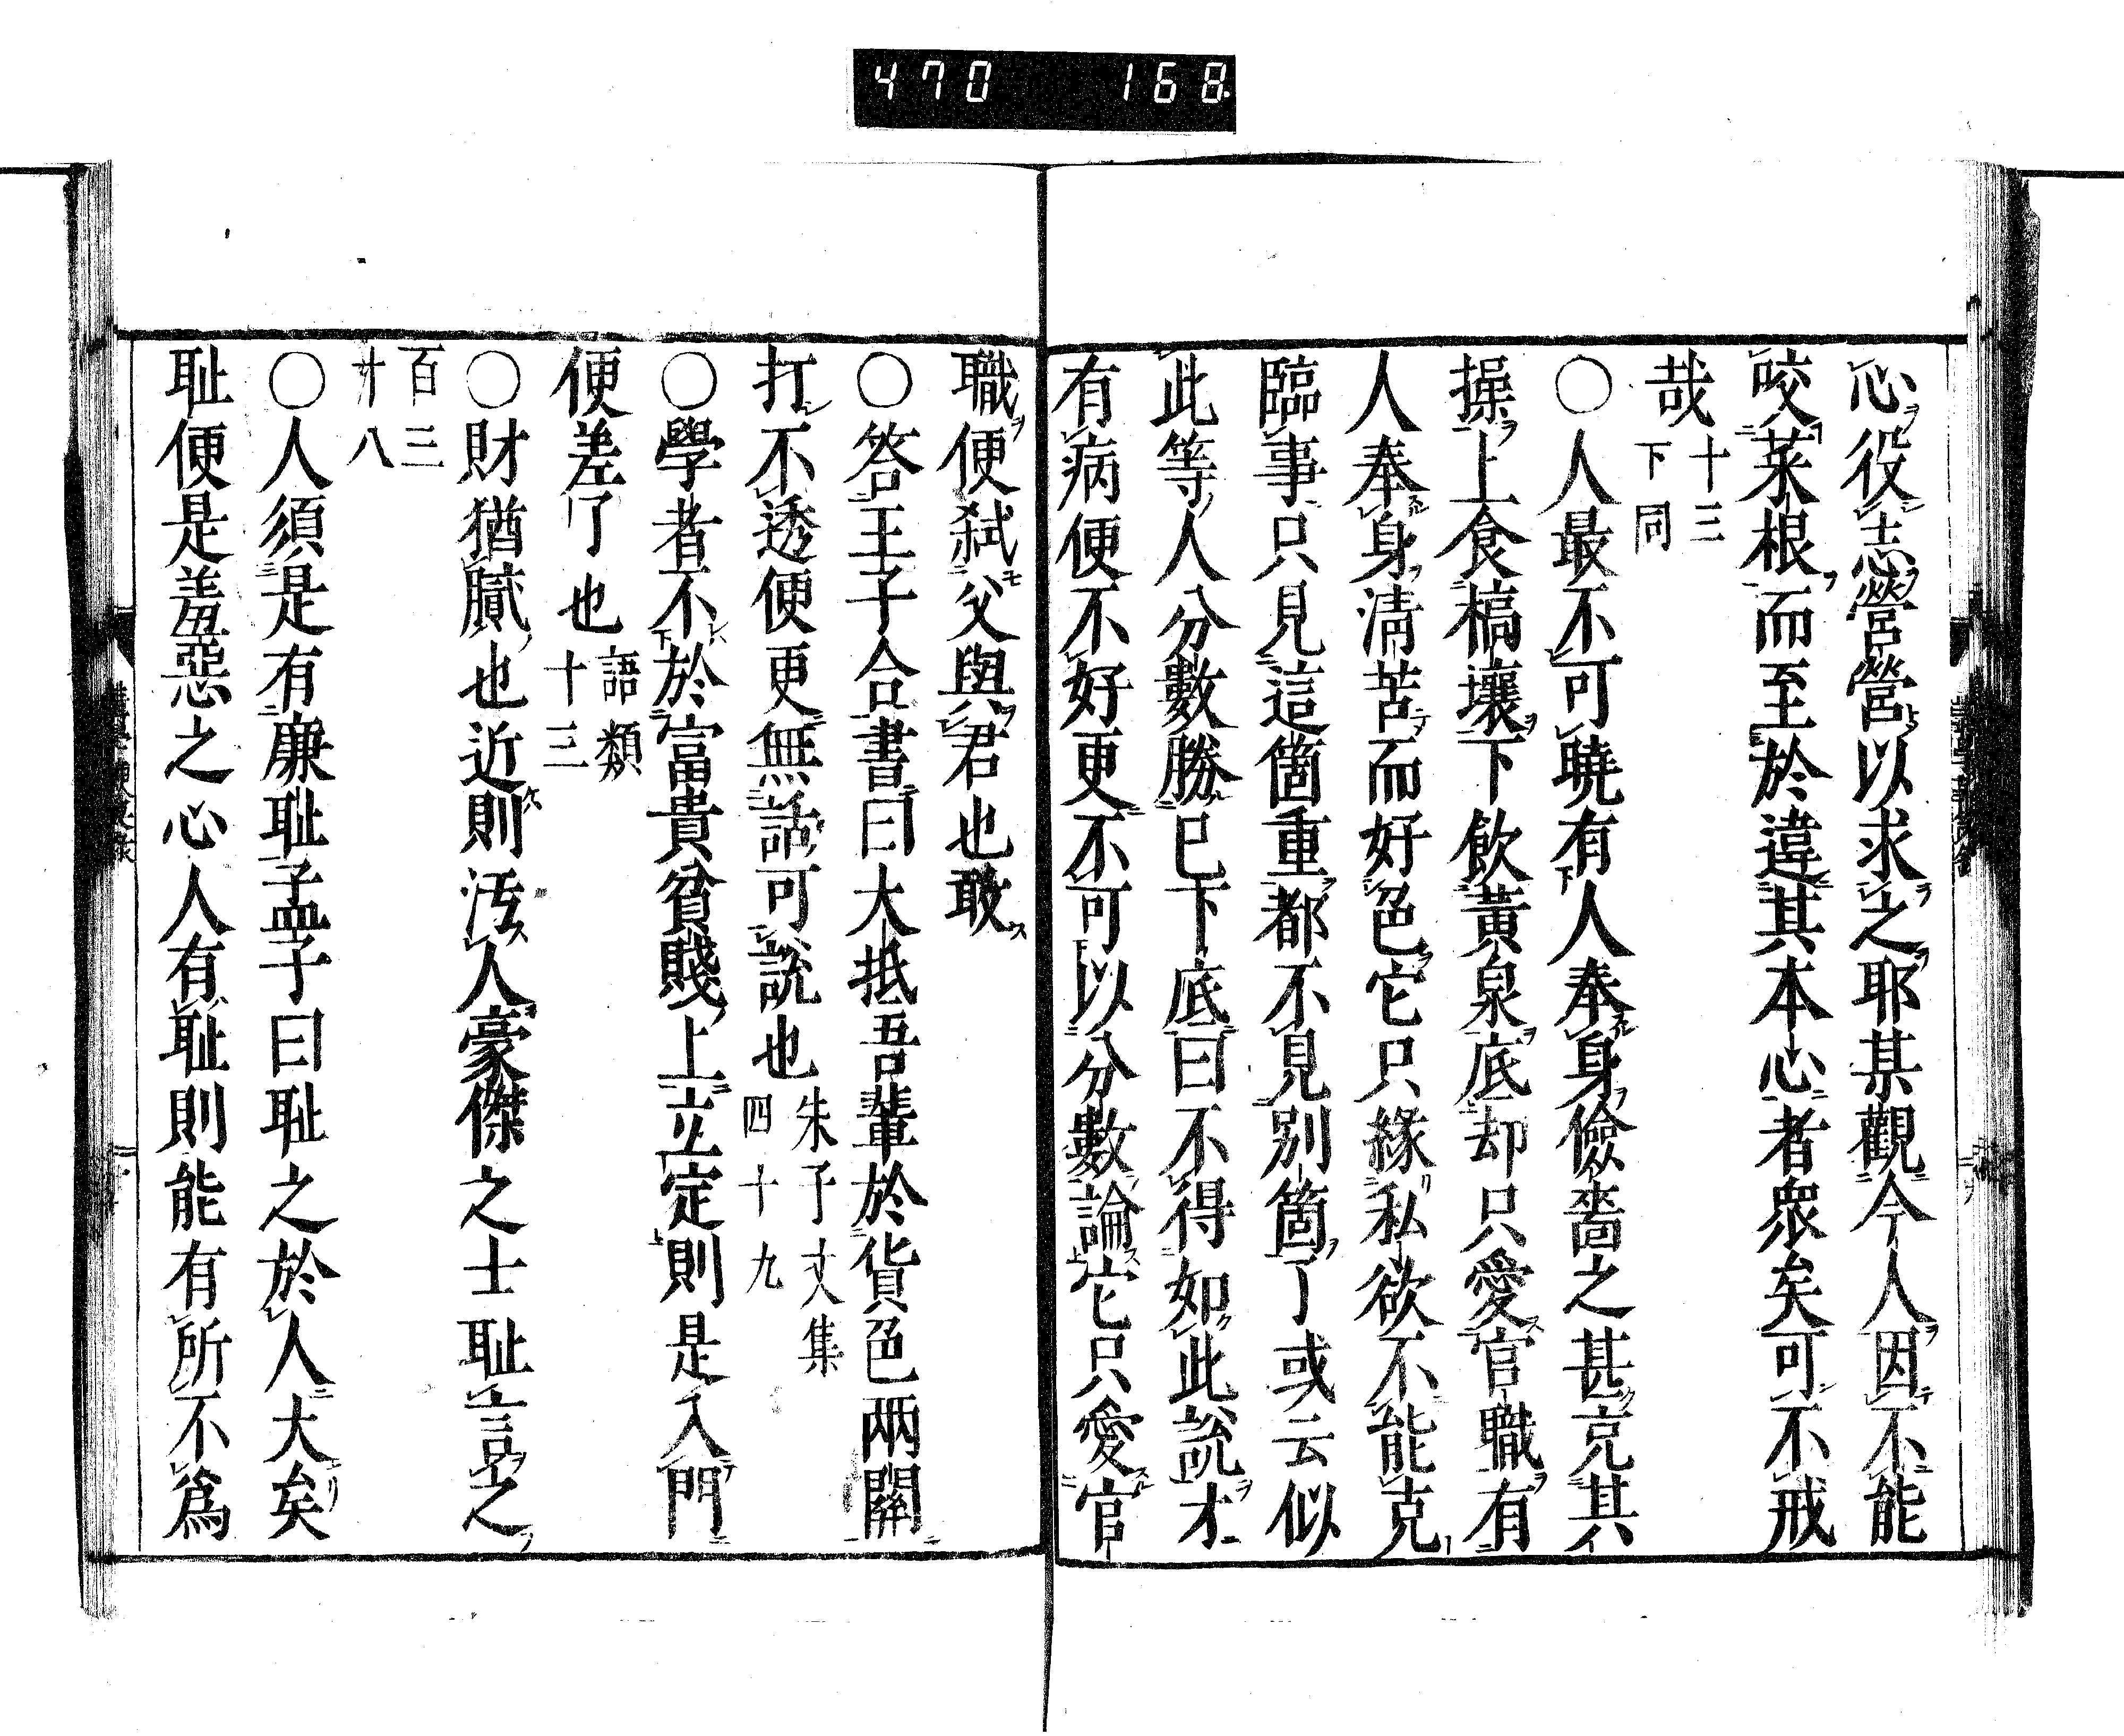 470 168
心役志營營以求之耶某觀今人因不能
咬菜根而至於違其本心者衆矣可不戒
哉十三下同
○人最不可曉有人奉身儉嗇之甚充其
操上食槁壤下飲黃泉底却只愛官職有
人奉身淸苦而好色它只緣私欲不能克
臨事只見這箇重都不見別箇了或云似
此等人分數勝已下底曰不得如此說才
有病便不好更不可以分數論它只愛官
職便弑父與君也敢
○答王子合書曰大抵吾輩於貨色兩關
打不透便更無話可說也朱子文集四十九
○學者不於富貴貧賤上立定則是入門
便差了也語類十三
○財猶膩也近則汚人豪傑之士耻言之
百三十八
○人須是有廉耻孟子曰耻之於人大矣
耻便是羞惡之心人有耻則能有所不爲